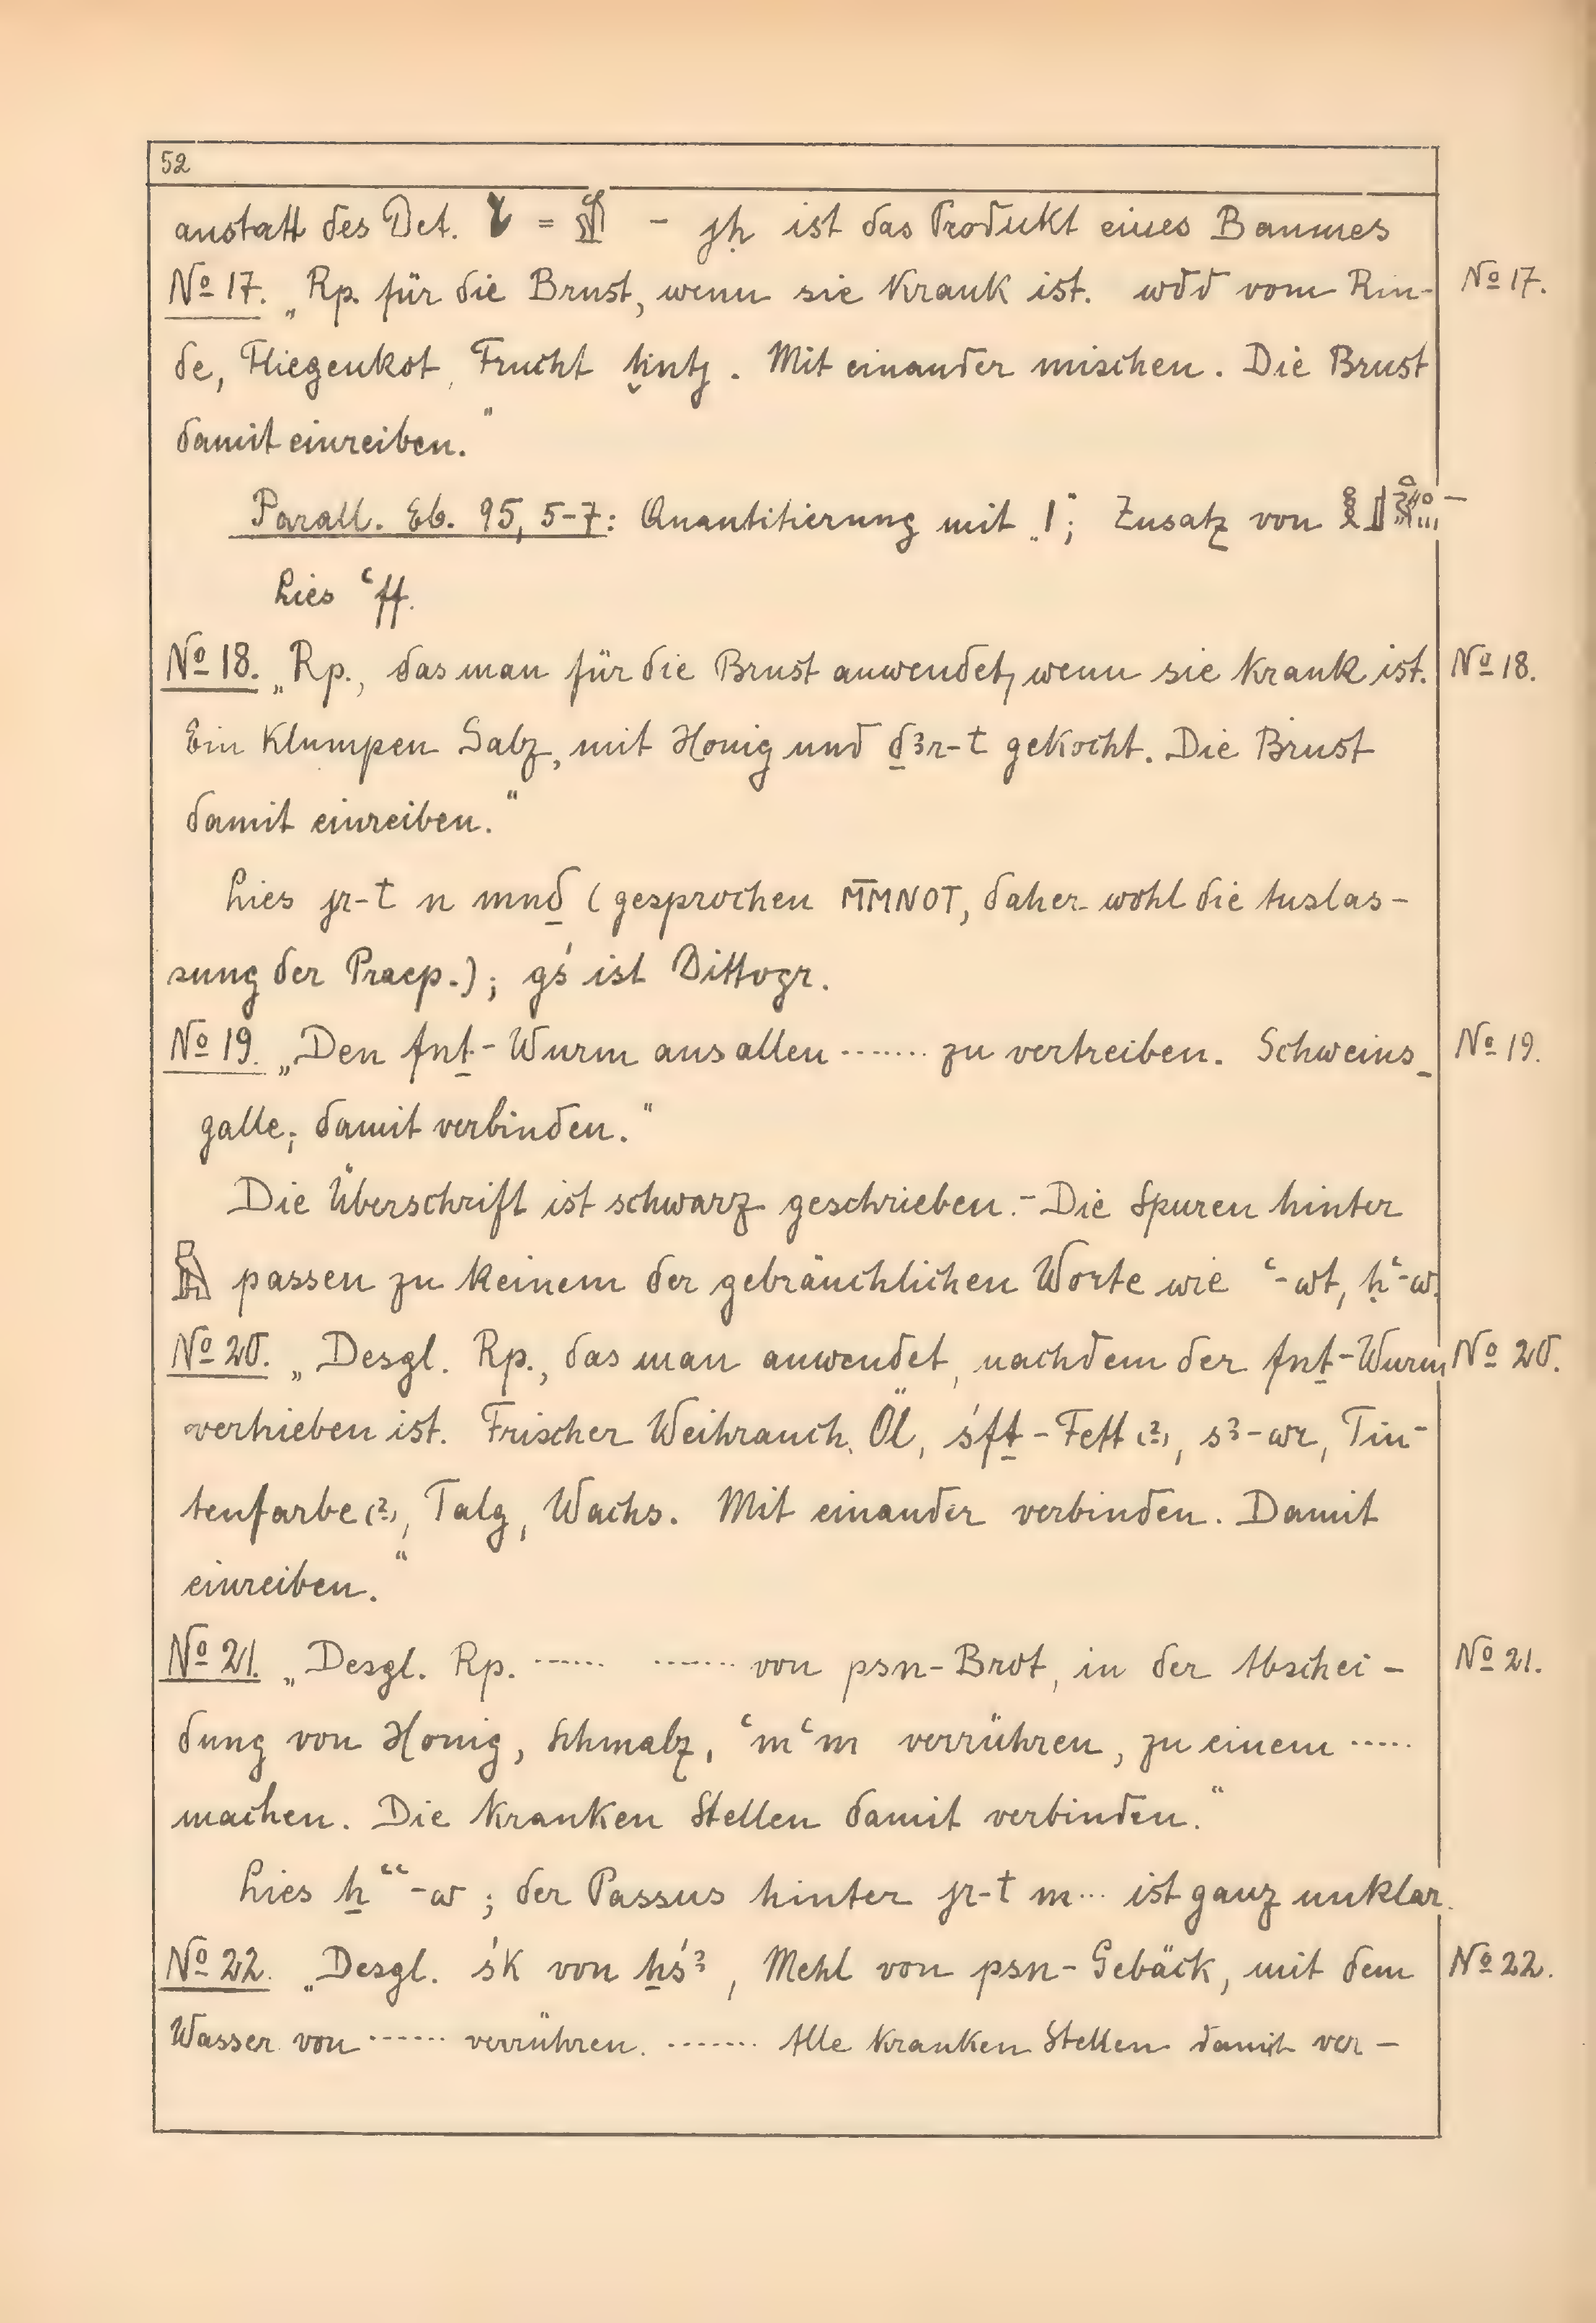 52
anstatt des Det. = – jḥ ist das Produkt eines Baumes
No 17. „Rp. für die Brust, wenn sie krank ist. wdd vom Rin- No 17.
de, Fliegenkot, Frucht ḫntj. Mit einander mischen. Die Brust
damit einreiben."
Parall. Eb. 95, 5-7: Quantitierung mit „I"; Zusatz von –
Lies ꜥff.
No 18. „Rp., das man für die Brust anwendet, wenn sie krank ist. No 18.
Ein Klumpen Salz, mit Honig und ḏꜣr-t gekocht. Die Brust
damit einreiben."
Lies jr-t n mnḏ (gesprochen M̅MNOT, daher wohl die Auslas-
sung der Praep.); gś ist Dittogr.
No 19. „Den fnṯ-Wurm aus allen ....... zu vertreiben. Schweins- No 19.
galle; damit verbinden."
Die Überschrift ist schwarz geschrieben. – Die Spuren hinter
passen zu keinem der gebräuchlichen Worte wie ꜥ-wt, ḥꜥ-w.
No 20. „Desgl. Rp., das man anwendet, nachdem der fnṯ-Wurm No 20.
vertrieben ist. Frischer Weihrauch, Öl, śfṯ-Fett (?), sꜣ-wr, Tin-
tenfarbe (?), Talg, Wachs. Mit einander verbinden. Damit
einreiben."
No 21. „Desgl. Rp. ...... ....... von psn-Brot, in der Abschei- No 21.
dung von Honig, Schmalz, ꜥmꜥm verrühren, zu einem .....
machen. Die kranken Stellen damit verbinden."
Lies ẖꜥꜥ-w; der Passus hinter jr-t m... ist ganz unklar.
No 22. „Desgl. śk von ẖśꜣ, Mehl von psn-Gebäck, mit dem No 22.
Wasser von ...... verrühren. ....... Alle kranken Stellen damit ver-